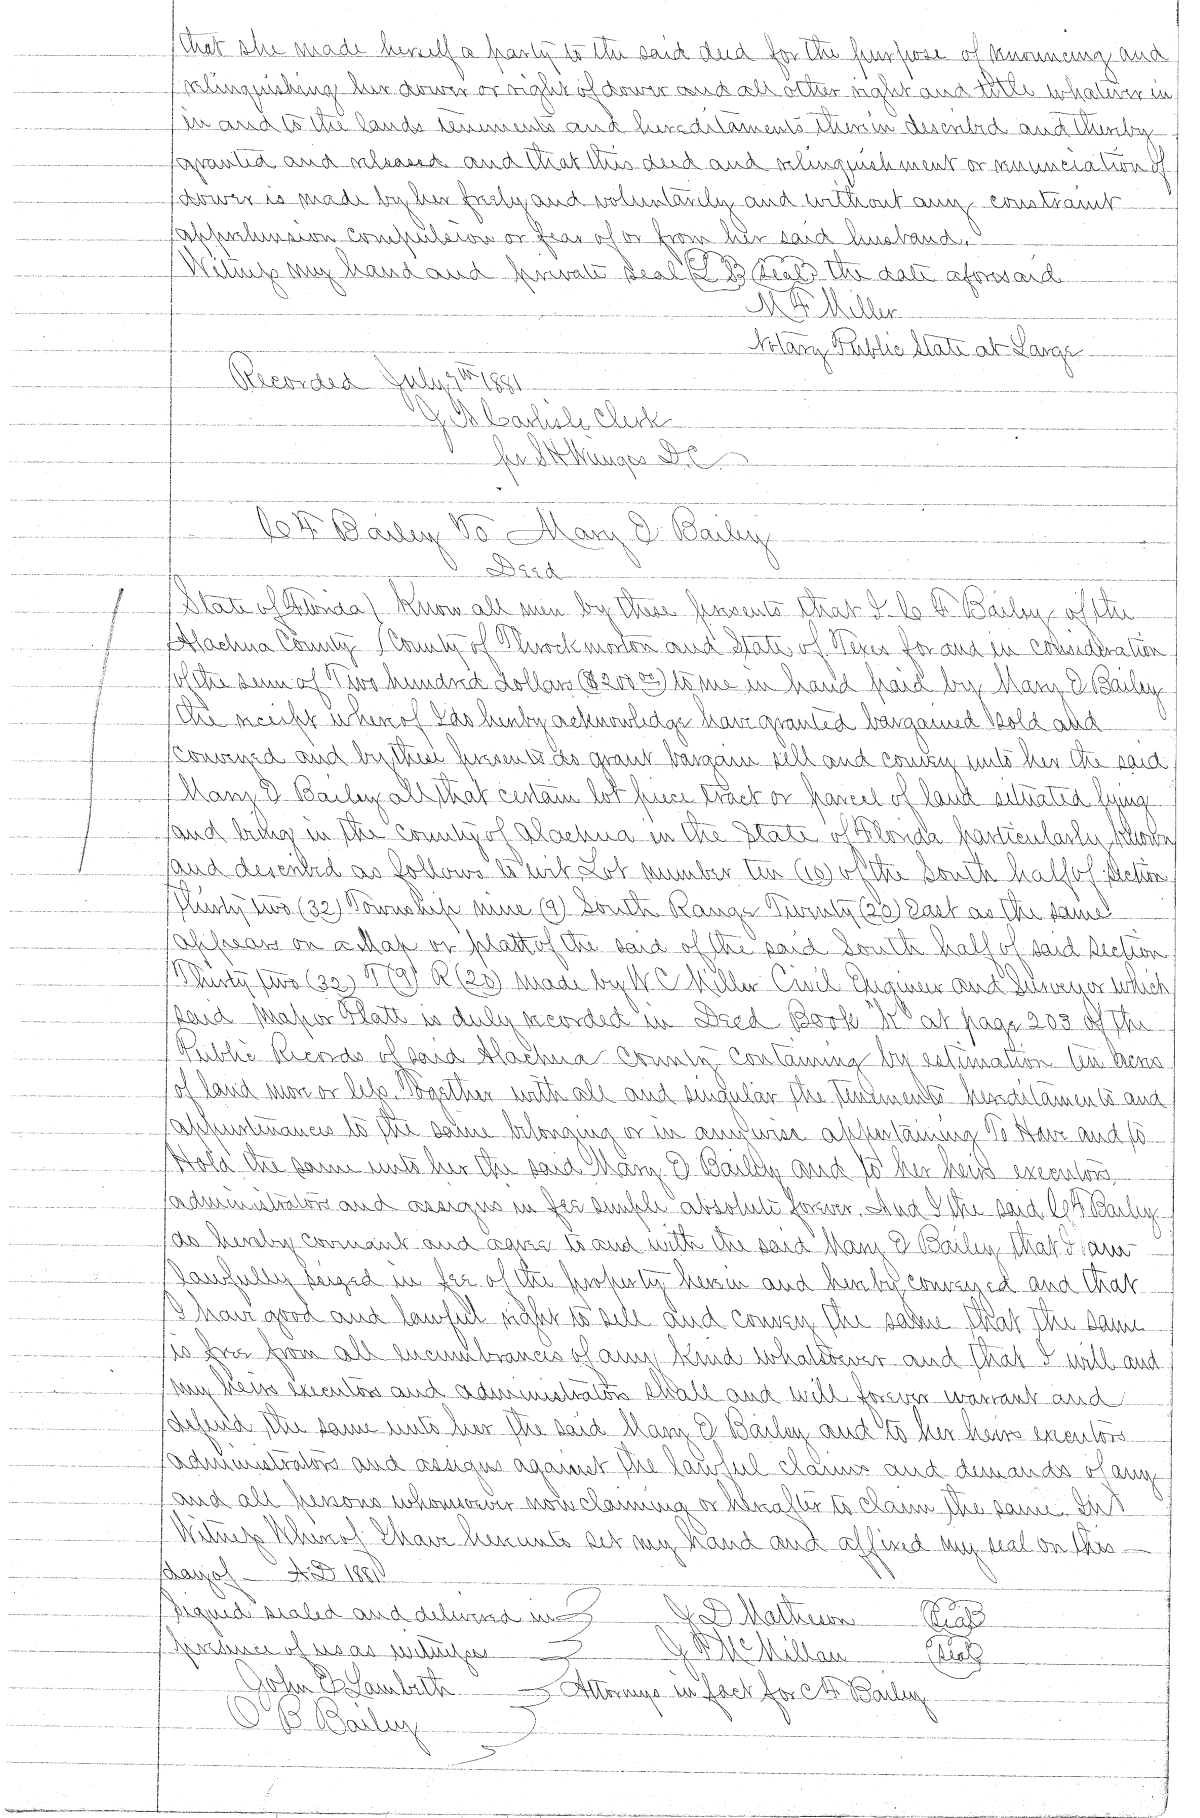 that she made herself a party to the said deed for the purpose of renouncing and
relinquishing her dower or right of dower and all other right and title whatever in
in and to the lands tenements and hereditaments therein described and thereby
granted and released and that this deed and relinquishment or renunciation of
dower is made by her freely and voluntarily and without any constraint
apprehension compulsion or fear of or from her said husband.
Witness my hand and private seal L B Seal the date aforesaid
M F Miller
Notary Public State at Large
Recorded July 7th 1881
J A Carlisle Clerk
per S H Wienges D.C
C F Bailey To Mary E Bailey
Deed
State of Florida) Know all men by these presents that I C F Bailey of the
Alachua County (County of Throckmorton and State of Texes for and in consideration
of the sum of Two hundred dollars ($200 00) to me in hand paid by Mary E Bailey
the receipt where of I do herby acknowledge have granted bargained sold and
conveyed and by these presents do grant bargain sell and convey unto her the said
Mary E Bailey all that certain lot piece tract or parcel of land situated lying
and being in the county of Alachua in the State of Florida particularly known
and described as follows to wit Lot number ten (10) of the South half of section
Thirty two (32) Township nine (9) South Range Twenty (20) East as the same
appears on a Map or platt of the said of the said South half of said section
Thirty two (32) T(9) R(20) made by W C Miller Civil Engineer and Surveyor which
said Map or Platt is duly recorded in Deed Book "K" at page 203 of the
Public Records of said Alachua County containing by estimation ten acres
of land more or less. Together with all and singular the tenements hereditaments and
appurtenances to the same belonging or in anywise appertaining To Have and to
Hold the same unto her the said Mary E Bailey and to her heirs executors
administrators and assigns in fee simple absolute forever. And I the said C F Bailey
do hereby covenant and agree to and with the said Mary E Bailey that I am
lawfully seized in fee of the property herein and hereby conveyed and that
I have good and lawful right to sell and convey the same that the same
is free from all encumbrances of any kind whatsoever and that I will and
my heirs executors and administrators shall and will forever warrant and
defend the same unto her the said Mary E Bailey and to her heirs executors
administrators and assigns against the lawful claims and demands of any
and all persons whomsoever now claiming or hereafter to claim the same. In
Witness Whereof I have hereunto set my hand and affixed my seal on this —
day of — A D 1881
Signed sealed and delivered in J D Matheson Seal
presence of us as witnesses J F McMillan Seal
John E Lambeth Attorneys in fact for C F Bailey
O B Bailey